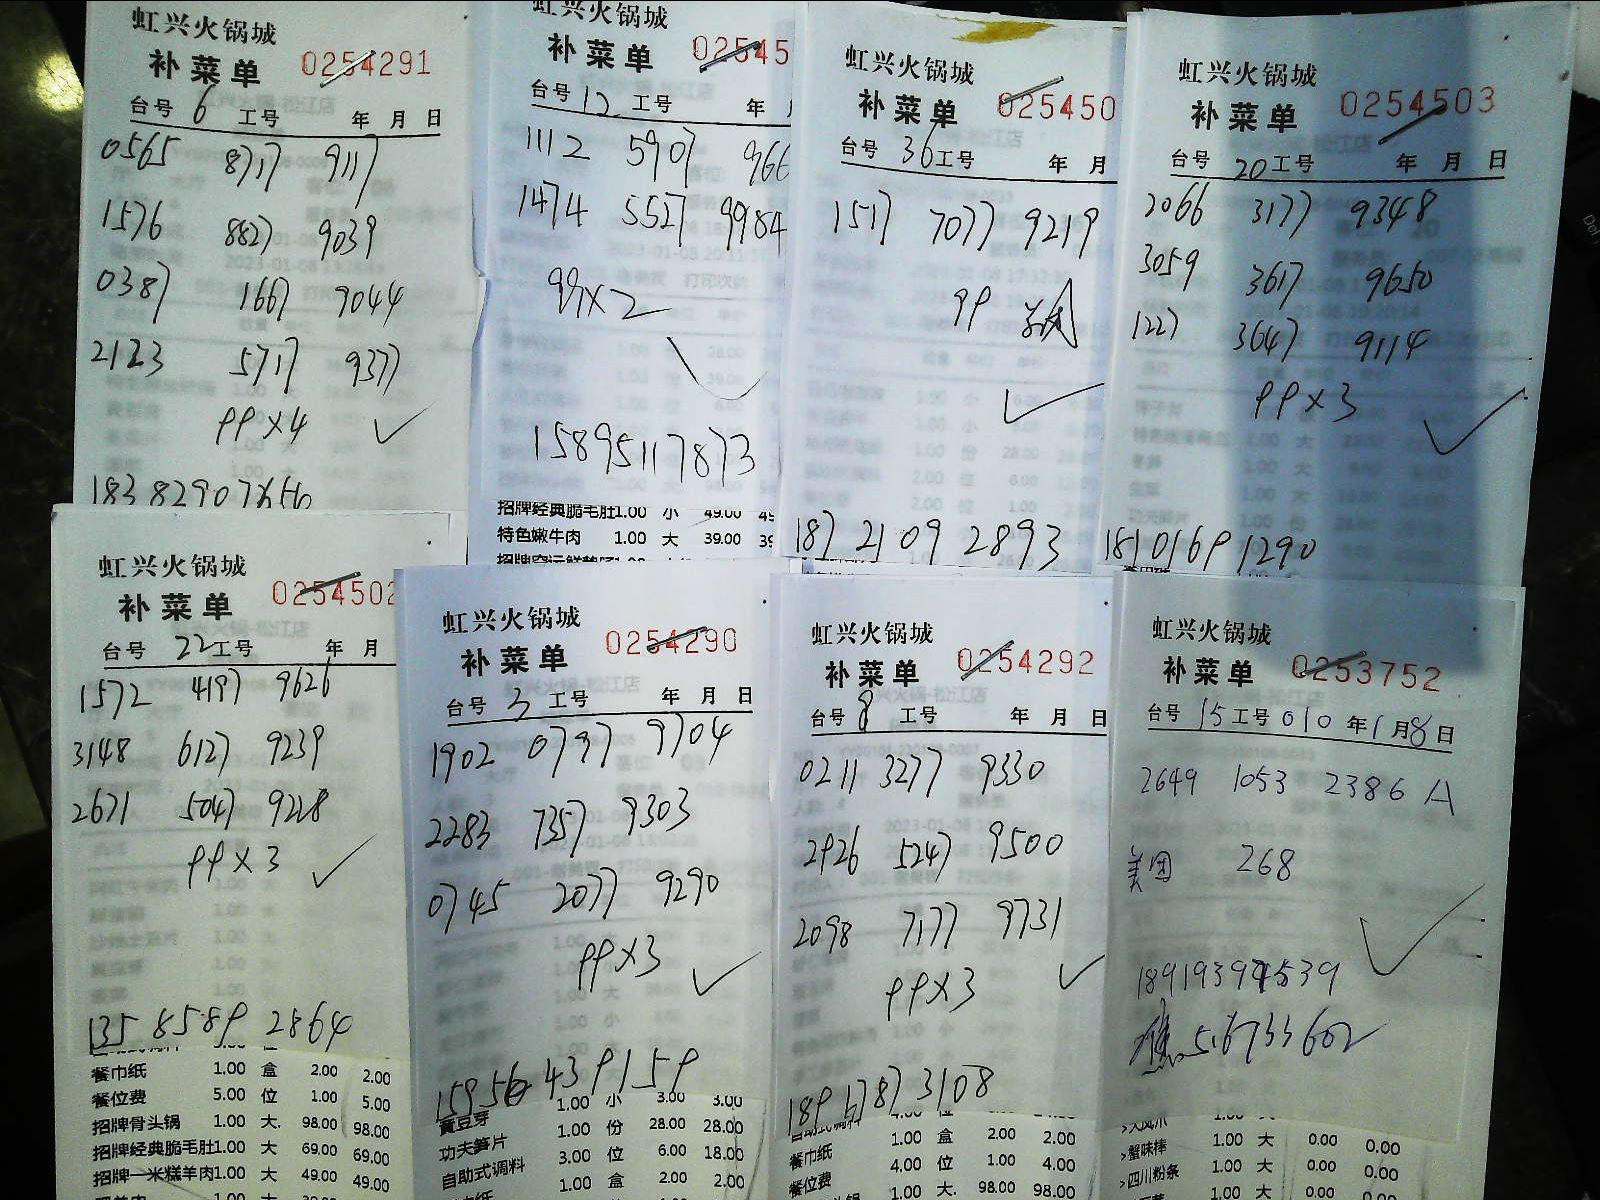 虹兴火锅城
补菜单 0254291
台号 6 工号 年 月 日
0565 8717 9117
1576 8827 9039
0387 1667 9044
2123 5717 9377
PP×4
虹兴火锅城
补菜单 02545
台号 12 工号 年
1112 5907 966
1474 5527 9984
99×2
15895117873
招牌经典脆毛肚1.00 小 49.00
特色嫩牛肉 1.00 大 39.00 39
虹兴火锅城
补菜单 025450
台号 36 工号 年 月
1517 7077 9219
PP
187 2109 2893
虹兴火锅城
补菜单 0254503
台号 20 工号 年 月 日
2066 3177 9348
3059 3617 9650
1227 3647 9114
PP×3
181 0169 1290
虹兴火锅城
补菜单 0254502
台号 22 工号 年 月
1572 4197 9626
3148 6127 9239
2671 5047 9228
PP×3
135 8589 2864
餐巾纸 1.00 盒 2.00 2.00
餐位费 5.00 位 1.00 5.00
招牌骨头锅 1.00 大. 98.00 98.00
招牌经典脆毛肚1.00 大 69.00 69.00
招牌一米糕羊肉1.00 大 49.00 49.00
虹兴火锅城
补菜单 0254290
台号 3 工号 年 月 日
1902 0797 9704
2283 7357 9303
0745 2077 9290
PP×3
15956439159
黄豆芽 1.00 小 3.00 3.00
功夫笋片 1.00 份 28.00 28.00
自助式调料 3.00 位 6.00 18.00
1.00 盒 2.00 2.00
虹兴火锅城
补菜单 0254292
台号 8 工号 年 月 日
0211 3277 9330
2926 5247 9500
2098 7177 9731
PP×3
189 1787 3108
餐巾纸 1.00 盒 2.00 2.00
餐位费 4.00 位 1.00 4.00
1.00 大. 98.00 98.00
虹兴火锅城
补菜单 0253752
台号 15 工号 010 年 1 月 8 日
2649 1053 2386 A
美团 268
>蟹味棒 1.00 大 0.00 0.00
>四川粉条 1.00 大 0.00 0.00